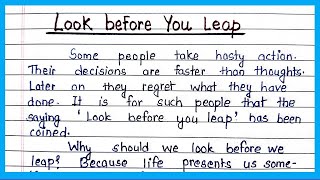 Look before You Leap
Some people take hasty action.
Their decisions are faster than thoughts.
Later on they regret what they have
done. It is for such people that the
saying 'Look before you leap' has been
coined.
Why should we look before we
leap? Because life presents us some-